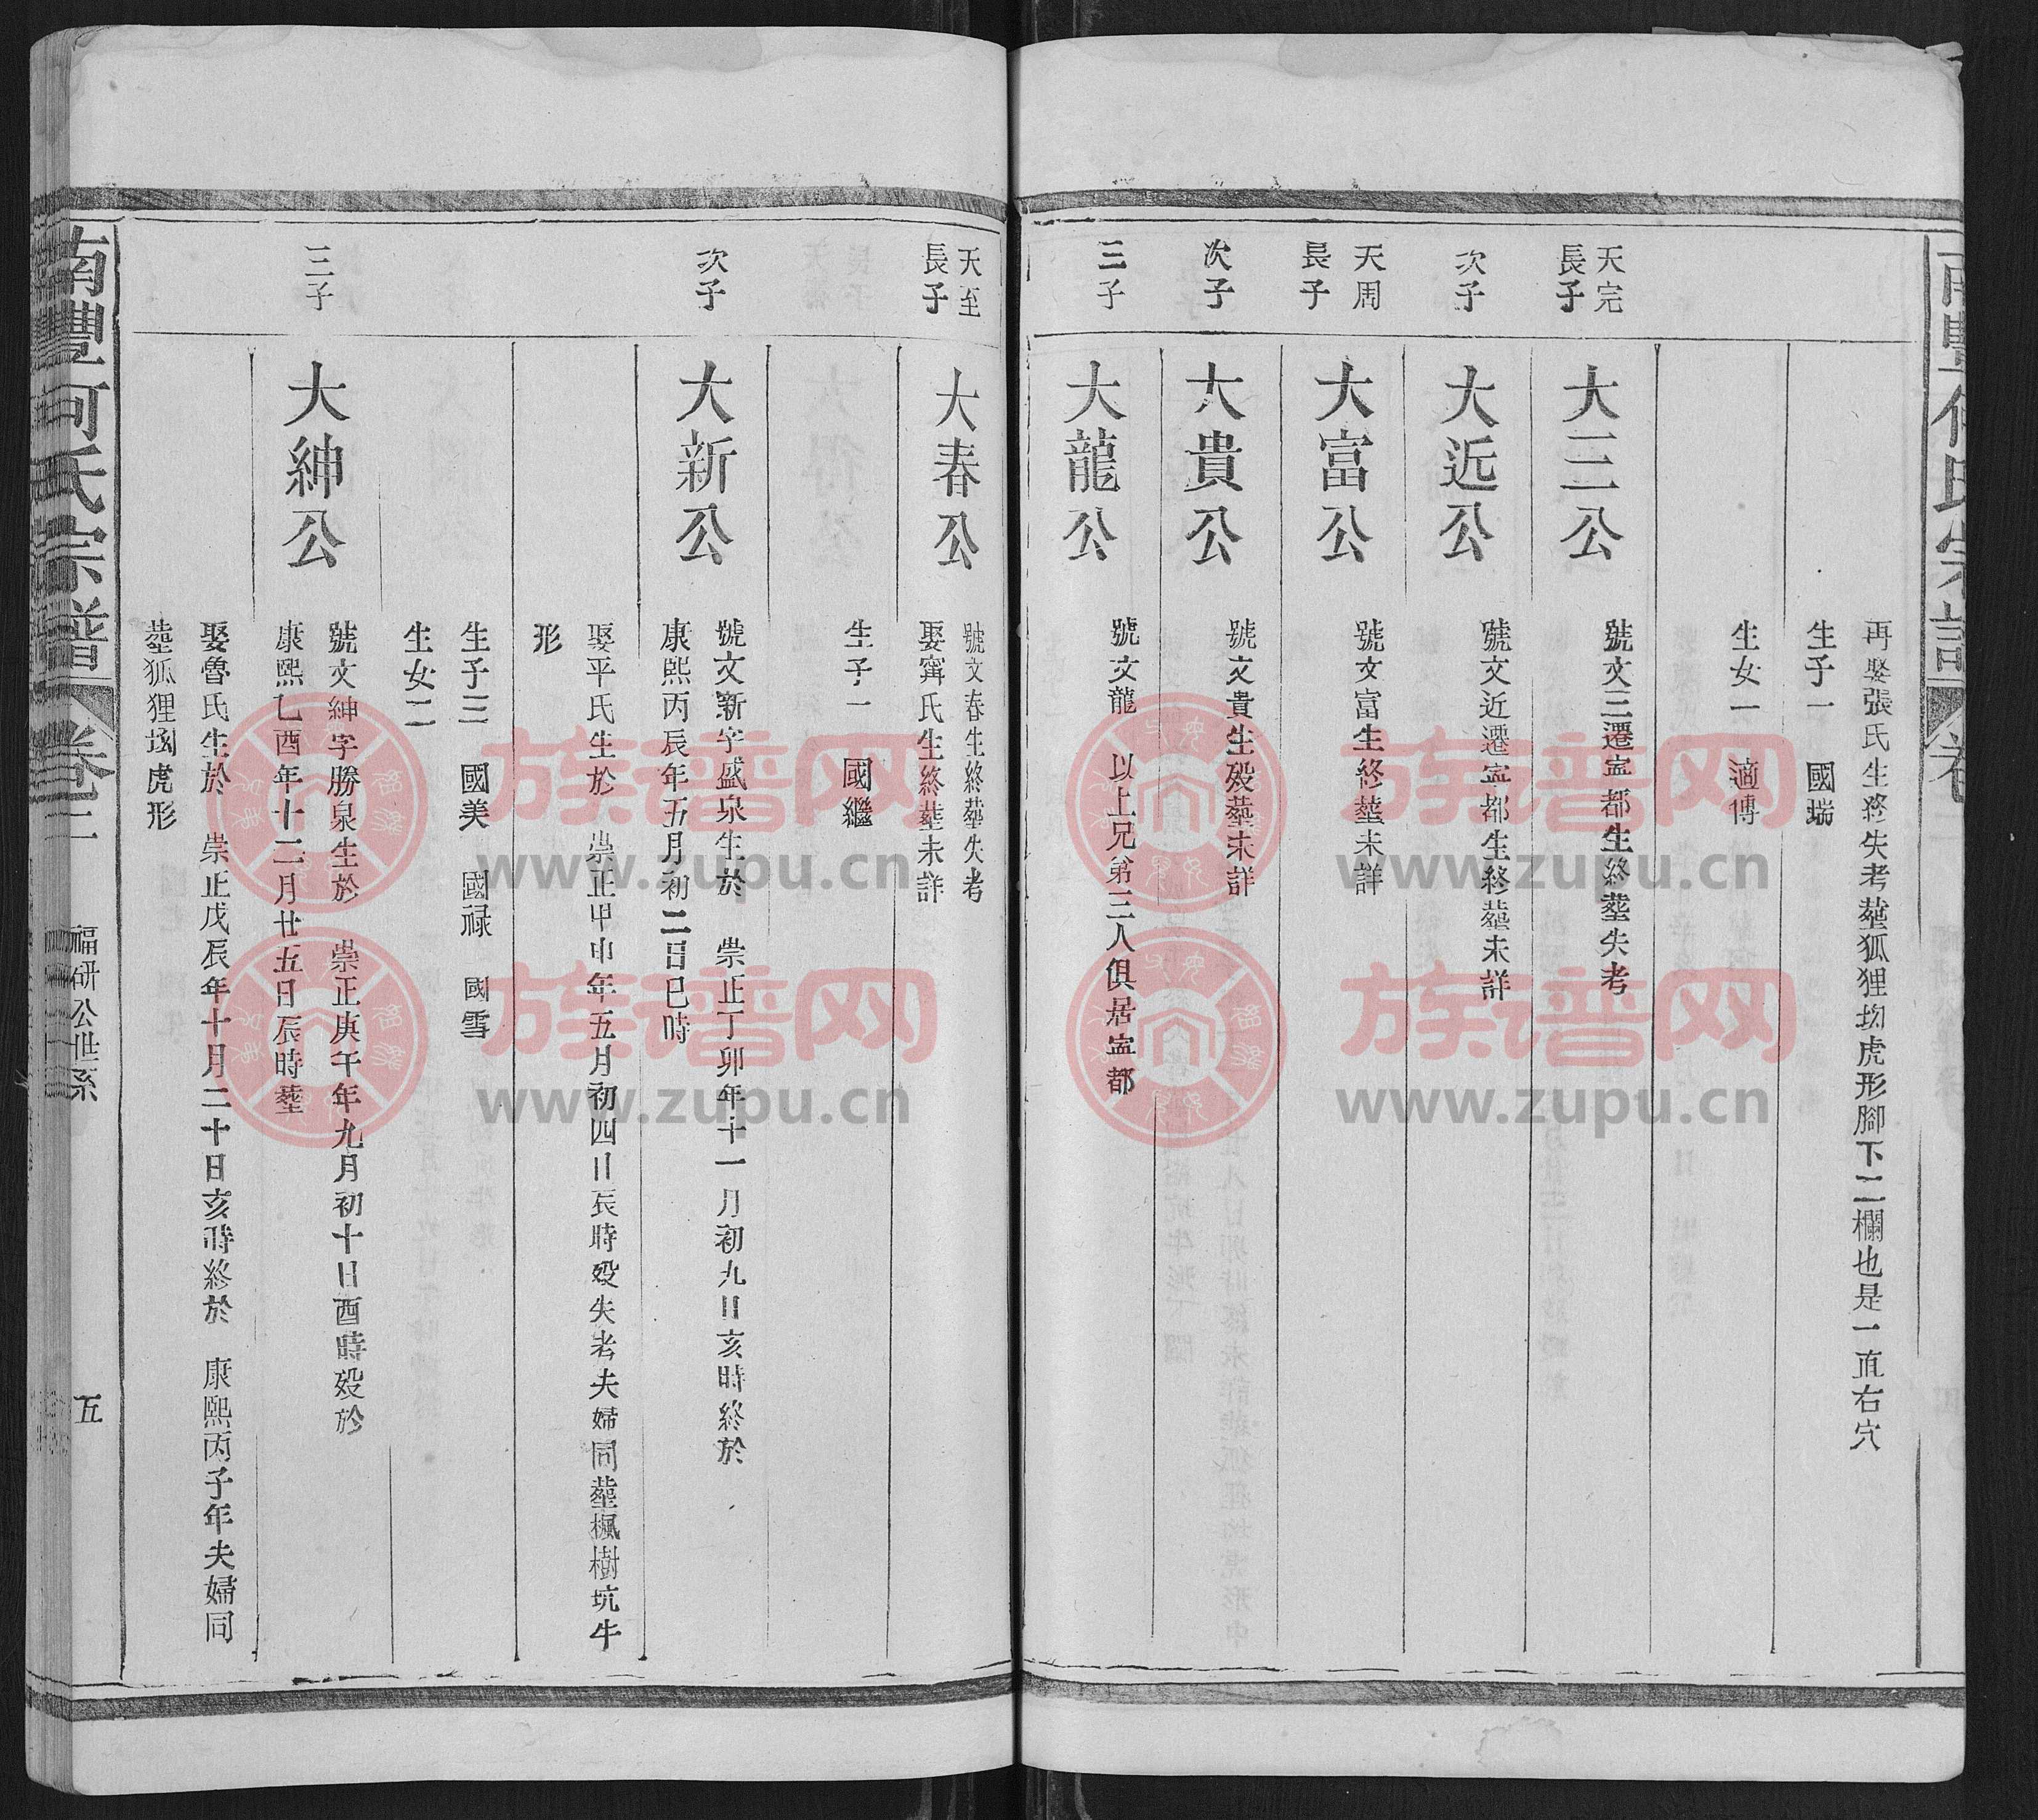 再娶張氏生終失考塟狐狸坳虎形腳下二欄也是一直右穴
生子一 國瑞
生女一 適傅
天完
長子
大三公
號文三遷寍都生終塟失考
次子
大近公
號文近遷寍都生終塟未詳
天周
長子
大富公
號文富生終塟未詳
次子
大貴公
號文貴生殁塟未詳
三子
大龍公
號文龍 以上兄弟三人俱居寍都
天至
長子
大春公
號文春生終塟失考
娶甯氏生終塟未詳
生子一 國繼
次子
大新公
號文新字盛泉生於 崇正丁卯年十一月初九日亥時終於
康熙丙辰年五月初二日巳時
娶平氏生於 崇正甲申年五月初四日辰時殁失考夫婦同塟楓樹坑牛
形
生子三 國美 國禄 國雪
生女二
三子
大紳公
號文紳字勝泉生於 崇正庚午年九月初十日酉時殁於
康熙乙酉年十二月廿五日辰時塟
娶魯氏生於 崇正戊辰年十月二十日亥時終於 康熙丙子年夫婦同
塟狐狸坳虎形
南豐何氏宗譜 卷三 福研公世系 五
族谱网
www.zupu.cn
族谱网
www.zupu.cn
族谱网
www.zupu.cn
族谱网
www.zupu.cn